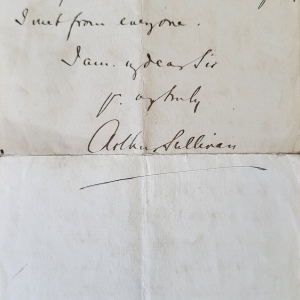 I met from everyone.
I am. my dear Sir
yr. v. truly
Arthur Sullivan